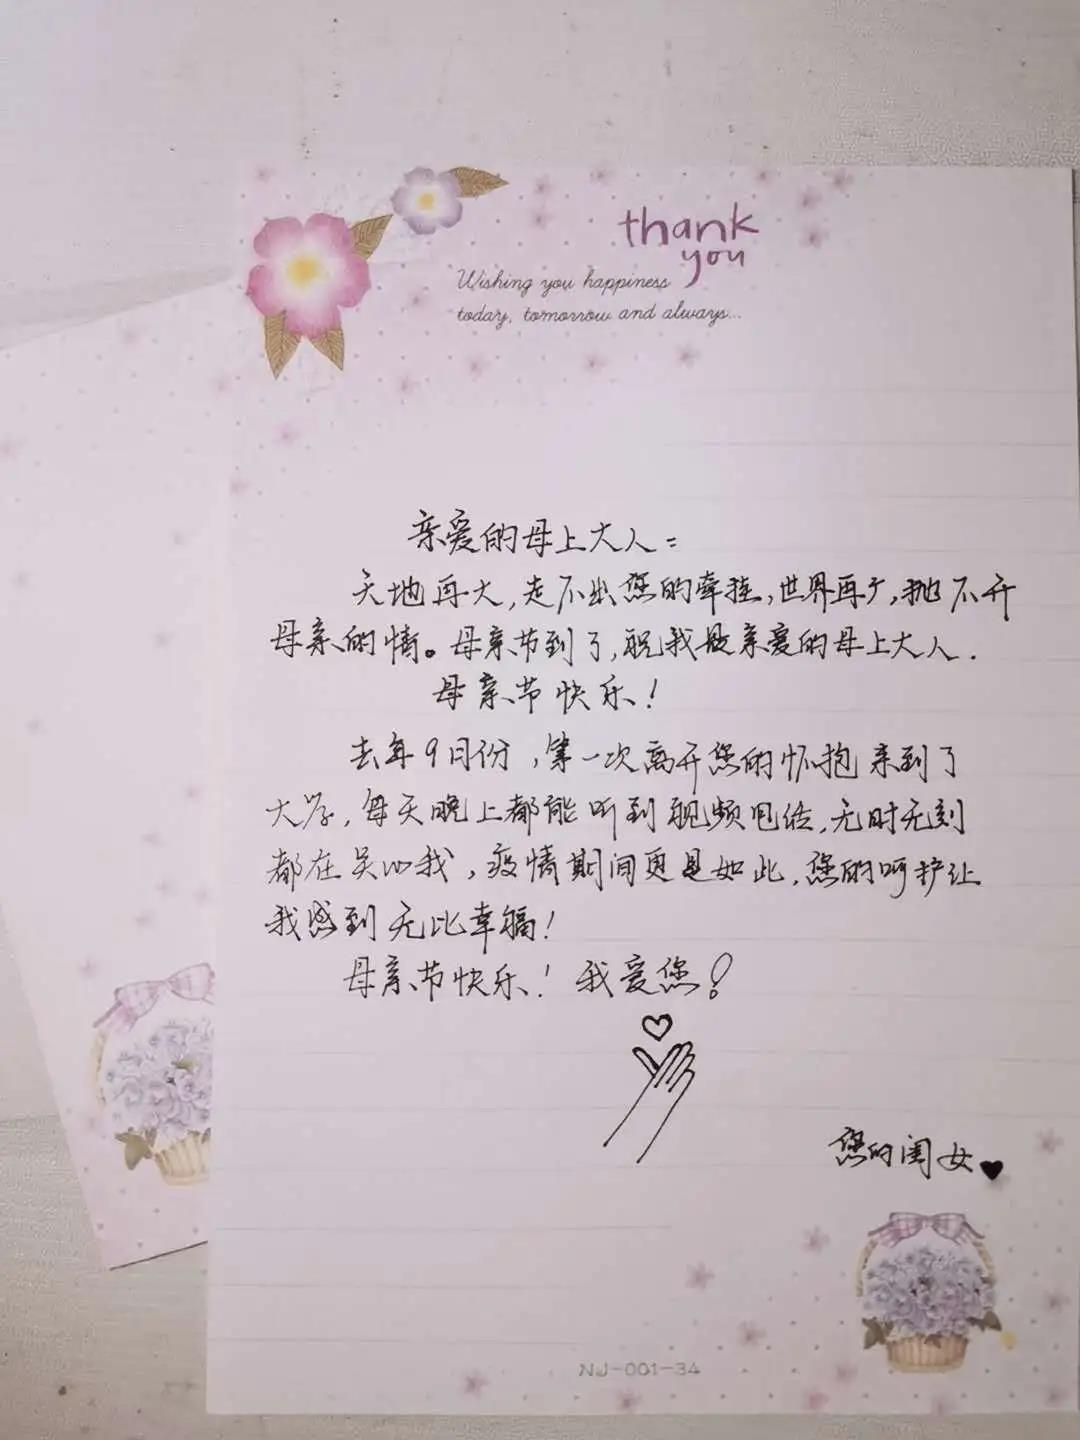 thank
you
Wishing you happiness
today, tomorrow and always...
亲爱的母上大人:
天地再大,走不出您的牵挂,世界再广,抛不开
母亲的情。母亲节到了,祝我最亲爱的母上大人.
母亲节快乐!
去年9月份,第一次离开您的怀抱来到了
大学,每天晚上都能听到视频电话,无时无刻
都在关心我,疫情期间更是如此,您的呵护让
我感到无比幸福!
母亲节快乐!我爱您!
您的闺女
NJ-001-34